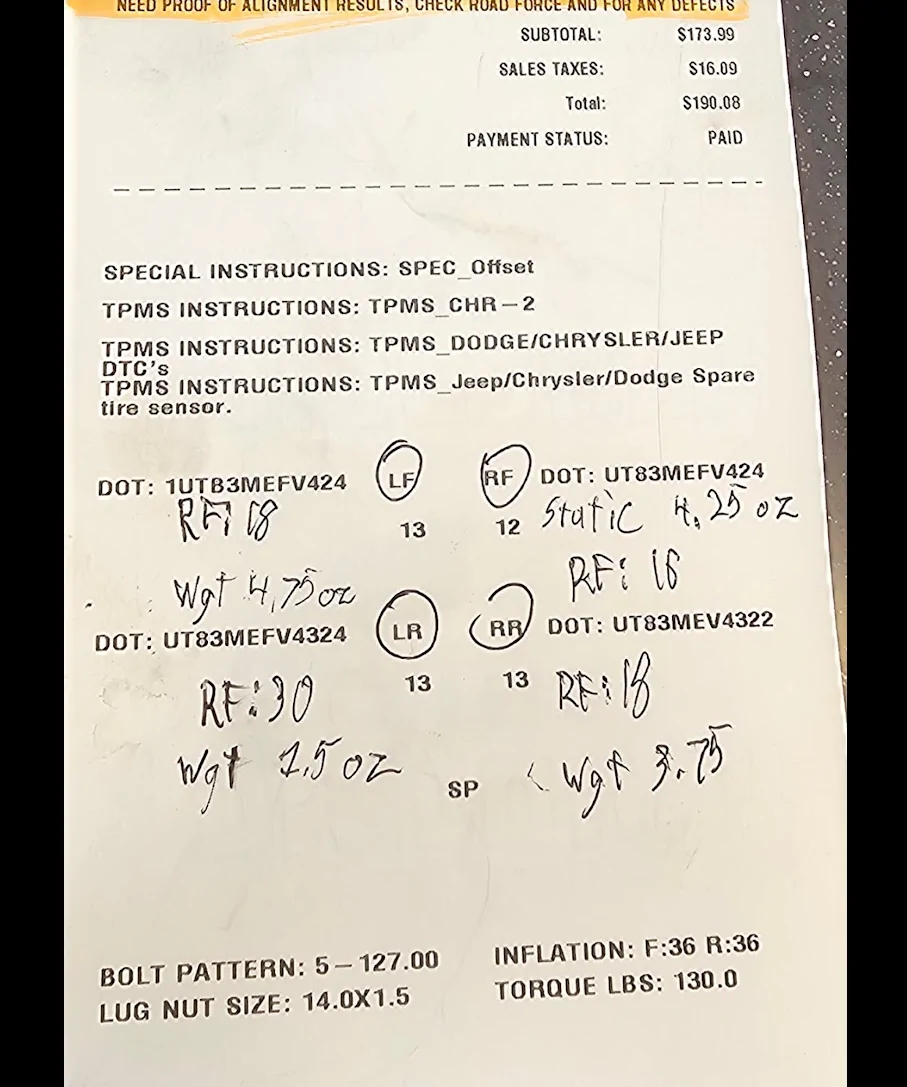 NEED PROOF OF ALIGNMENT RESULTS, CHECK ROAD FORCE AND FOR ANY DEFECTS
SUBTOTAL: $173.99
SALES TAXES: $16.09
Total: $190.08
PAYMENT STATUS: PAID
SPECIAL INSTRUCTIONS: SPEC_Offset
TPMS INSTRUCTIONS: TPMS_CHR-2
TPMS INSTRUCTIONS: TPMS_DODGE/CHRYSLER/JEEP
DTC's
TPMS INSTRUCTIONS: TPMS_Jeep/Chrysler/Dodge Spare
tire sensor.
DOT: 1UTB3MEFV424 LF RF DOT: UT83MEFV424
RF: 18 13 12 Static 4.25 oz
Wgt 4,75 oz RF: 16
DOT: UT83MEFV4324 LR RR DOT: UT83MEV4322
RF: 30 13 13 RF: 18
Wgt 1.5 oz SP Wgt 3.75
BOLT PATTERN: 5-127.00 INFLATION: F:36 R:36
LUG NUT SIZE: 14.0X1.5 TORQUE LBS: 130.0